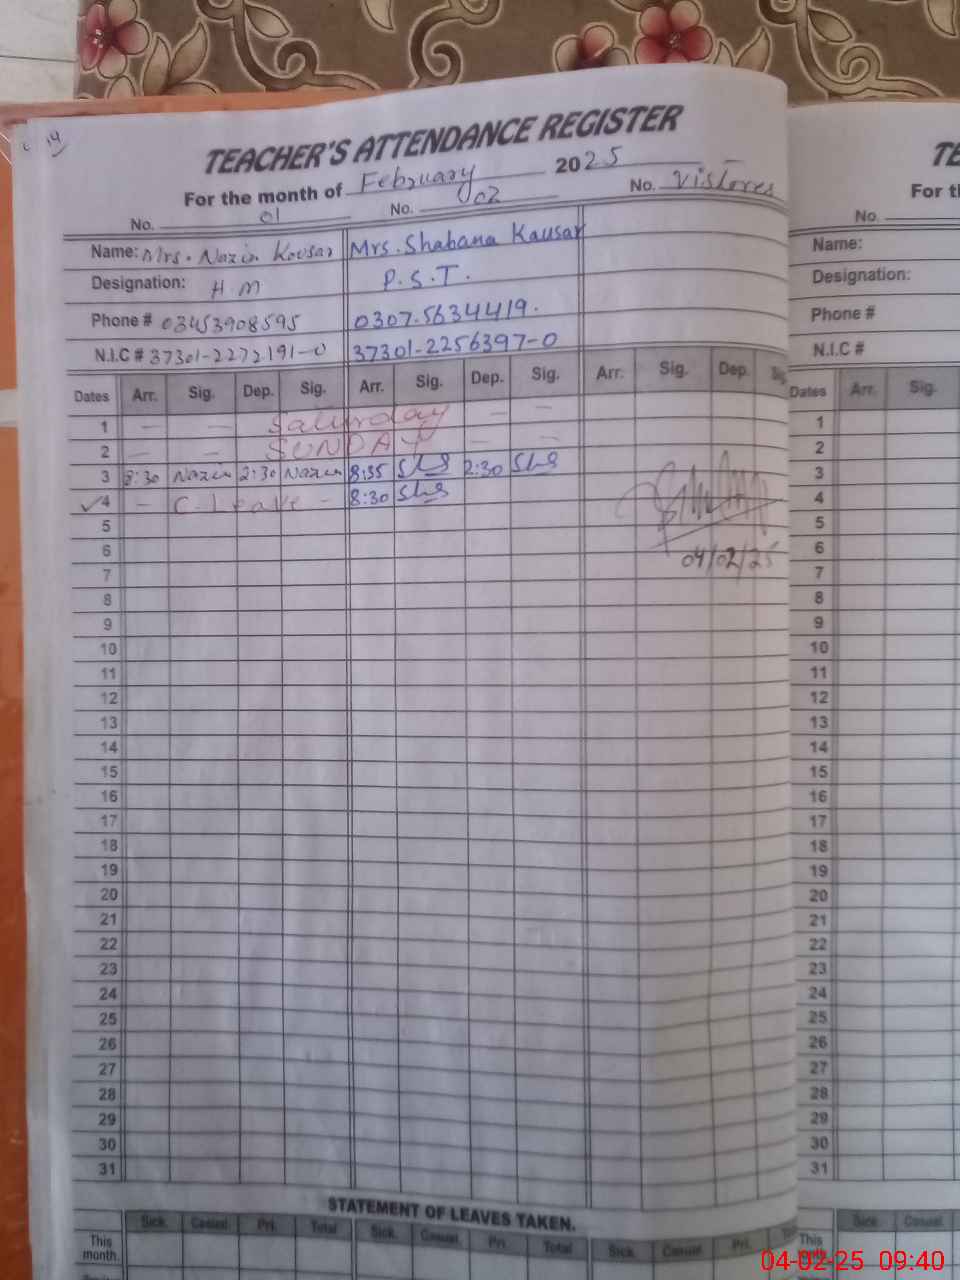 TEACHER'S ATTENDANCE REGISTER
For the month of February 2025
No. 01 No. 02 No. Vistores
Name: Mrs. Nazin Kousar Mrs. Shabana Kausar
Designation: H M P.S.T.
Phone # 03453908595 0307.5634419.
N.I.C # 37301-2272191-0 37301-2256397-0
Dates Arr. Sig. Dep. Sig. Arr. Sig. Dep. Sig. Arr. Sig. Dep. Sig.
1 — — Saturday — —
2 — — SUNDAY — —
3 8:30 Nazin 2:30 Nazin 8:35 2:30
✓4 — C. Leave - 8:30
04/02/25
5
6
7
8
9
10
11
12
13
14
15
16
17
18
19
20
21
22
23
24
25
26
27
28
29
30
31
STATEMENT OF LEAVES TAKEN.
Sick. Casual Pri. Total Sick. Casual Pri. Total Sick. Casual Pri.
This month.
TE
For t
No.
Name:
Designation:
Phone #
N.I.C #
Dates Arr. Sig.
1
2
3
4
5
6
7
8
9
10
11
12
13
14
15
16
17
18
19
20
21
22
23
24
25
26
27
28
29
30
31
Sick. Casual
This
04-02-25 09:40